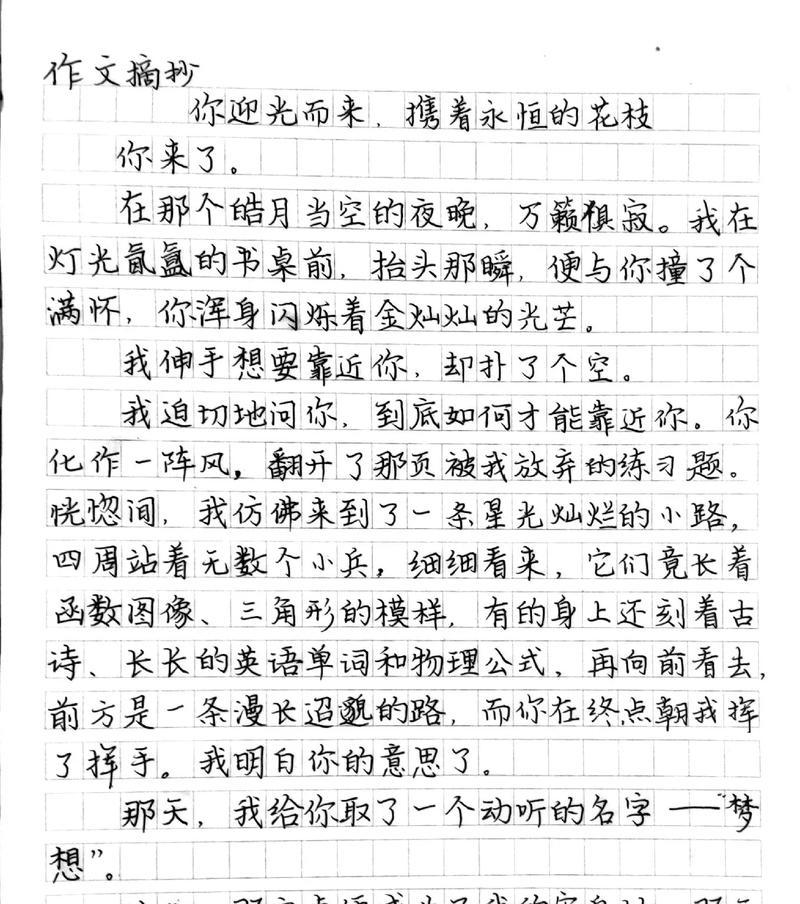 作文摘抄
你迎光而来，携着永恒的花枝
你来了。
在那个皓月当空的夜晚，万籁俱寂。我在
灯光氤氲的书桌前，抬头那瞬，便与你撞了个
满怀，你浑身闪烁着金灿灿的光芒。
我伸手想要靠近你，却扑了个空。
我迫切地问你，到底如何才能靠近你。你
化作一阵风，翻开了那页被我放弃的练习题。
恍惚间，我仿佛来到了一条星光灿烂的小路，
四周站着无数个小兵，细细看来，它们竟长着
函数图像、三角形的模样，有的身上还刻着古
诗、长长的英语单词和物理公式，再向前看去，
前方是一条漫长迢貌的路，而你在终点朝我挥
了挥手。我明白你的意思了。
那天，我给你取了一个动听的名字——“梦
想”。